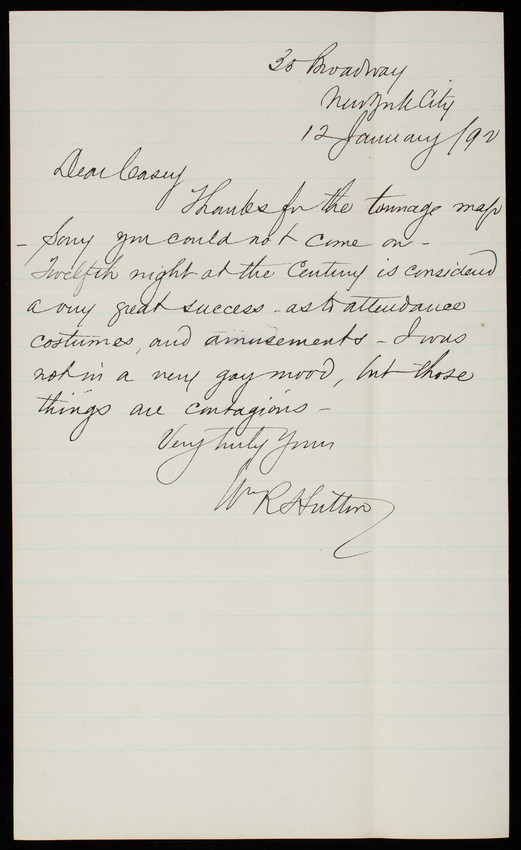 35 Broadway
New York City
12 January /92
Dear Casey
Thanks for the tonnage map
- Sorry you could not come on -
Twelfth night at the Century is considered
a very great success - as to attendance
costumes, and amusements - I was
not in a very gay mood, but those
things are contagious -
Very truly Yours
Wm R Hutton